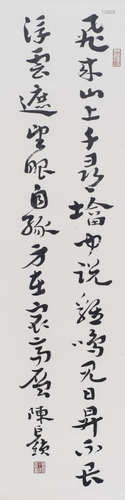 飛來山上千尋塔聞說雞鳴見日昇不畏
浮雲遮望眼自緣身在最高層 陳